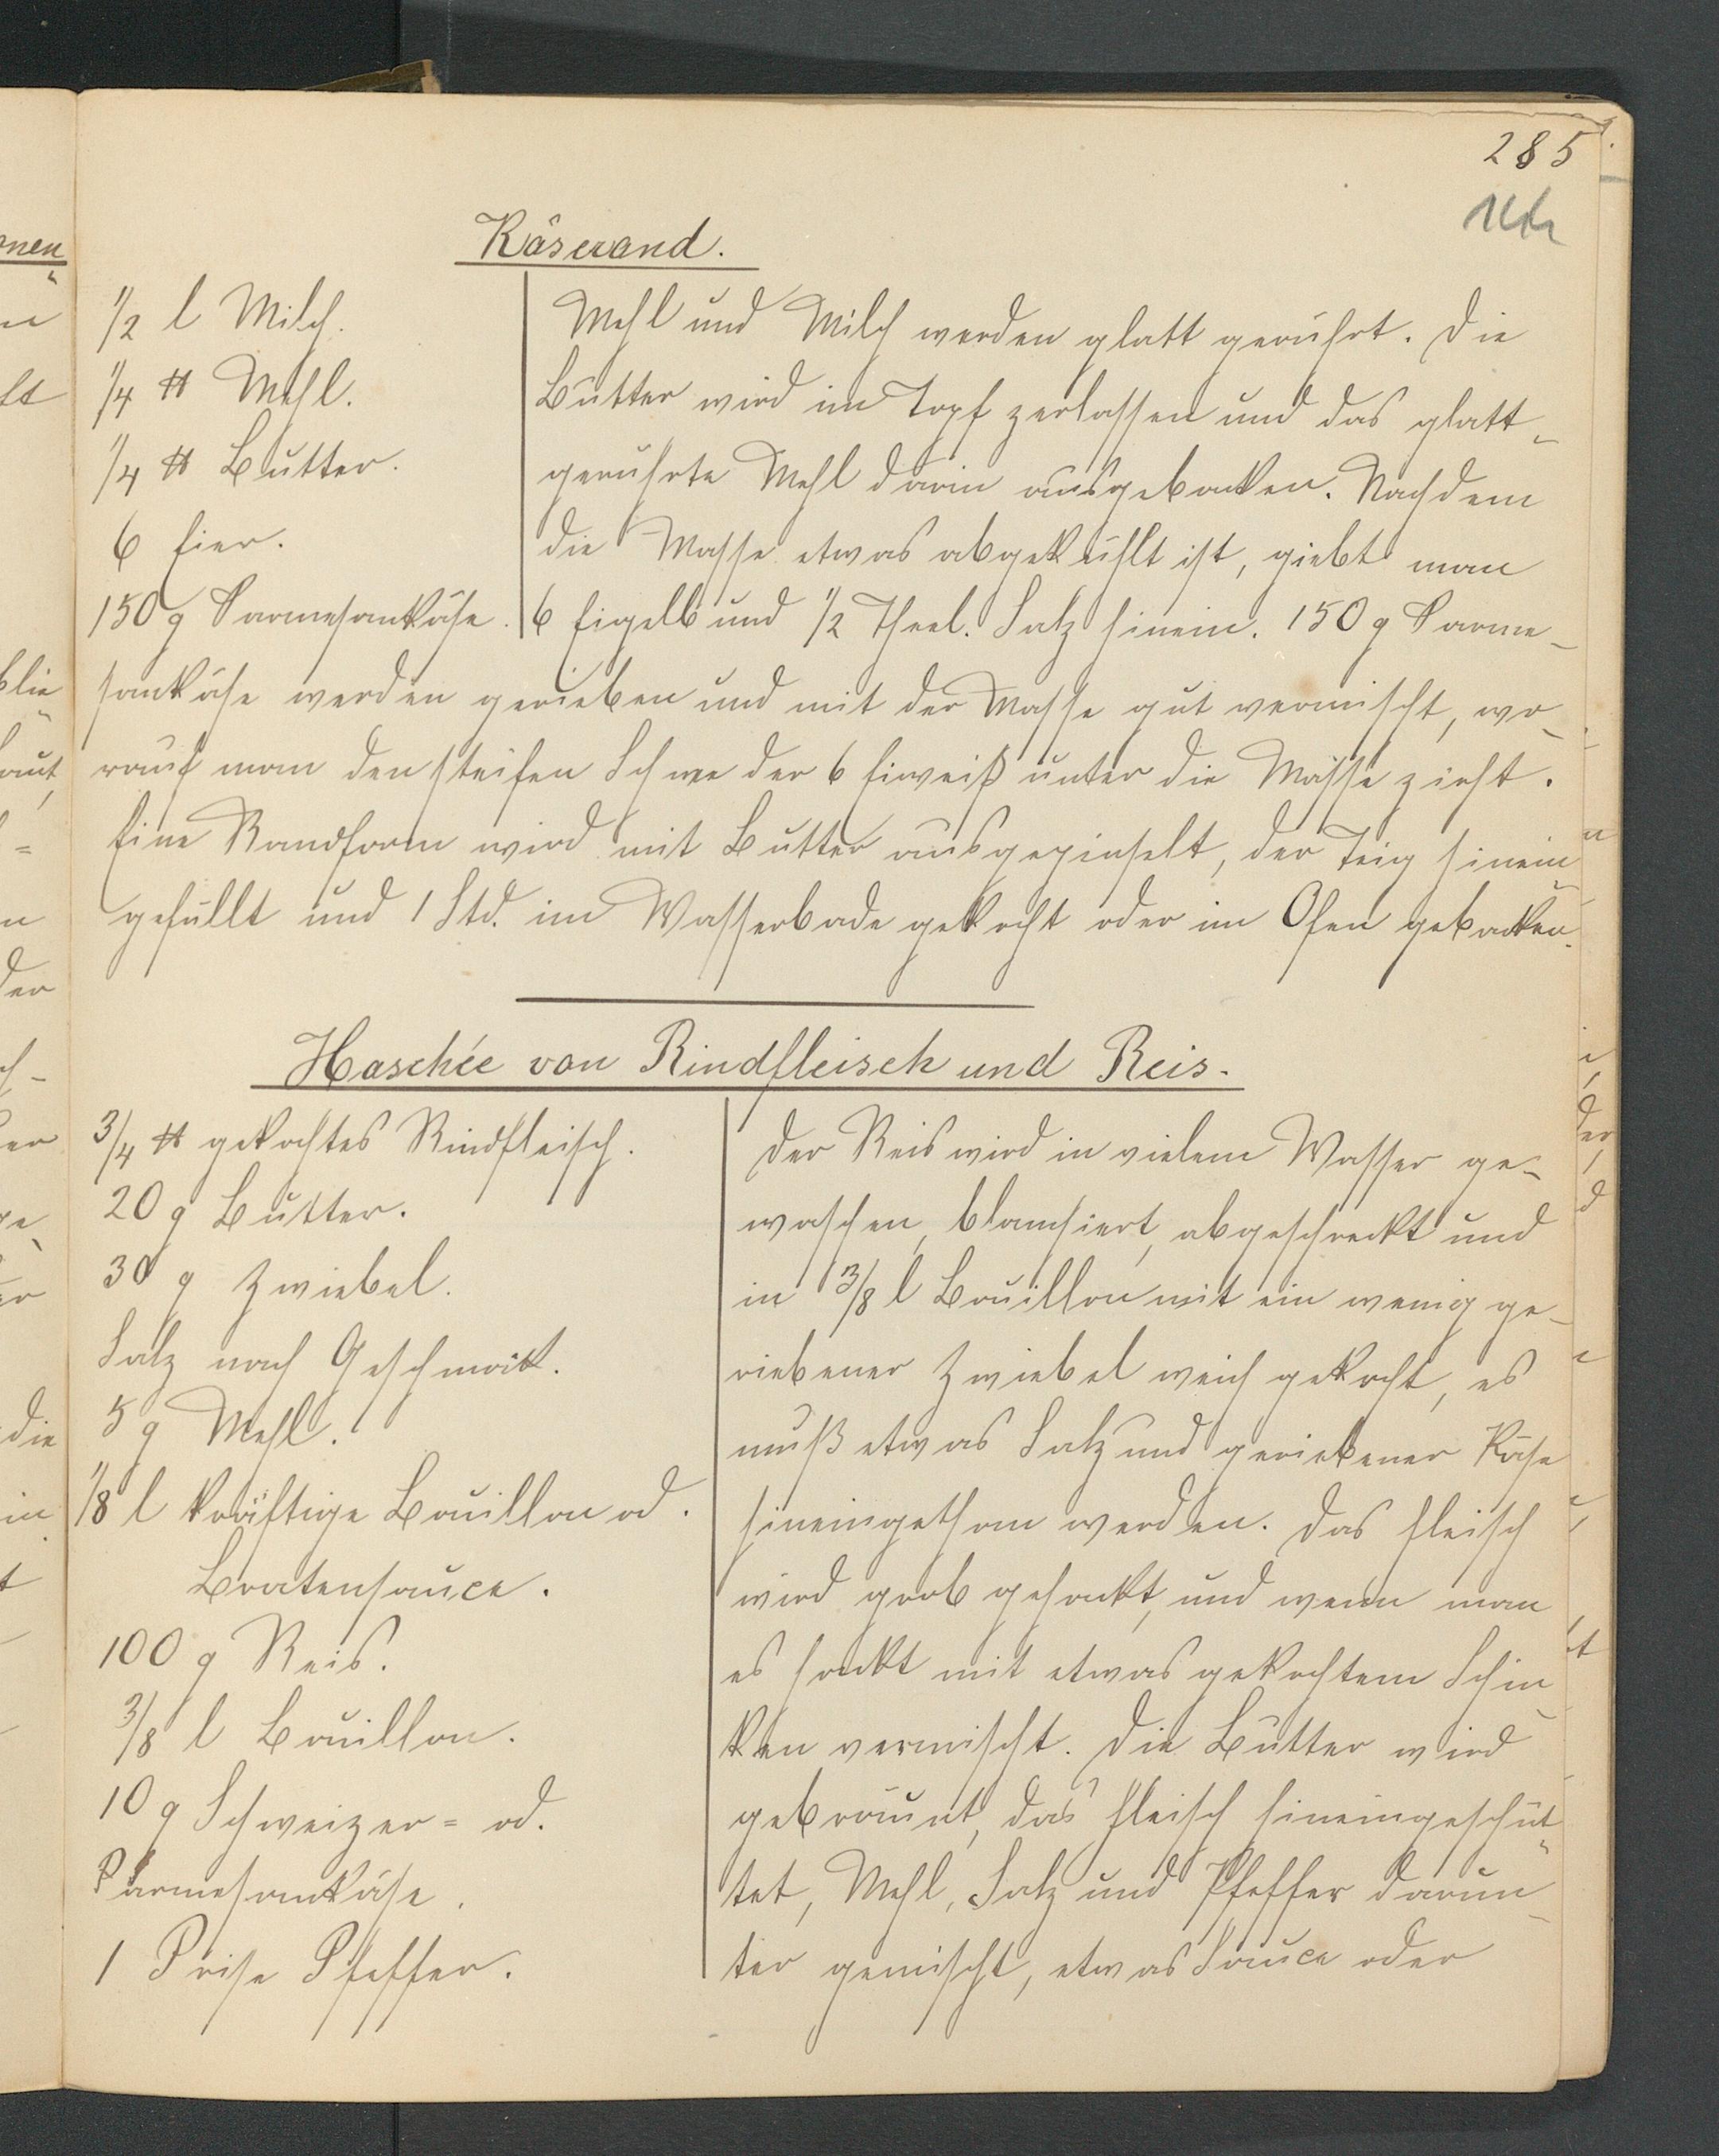 285
Käserand.
1/2 l Milch.
1/4 ℔ Mehl.
1/4 ℔ Butter.
6 Eier.
150 g Parmesankäse.
Mehl und Milch werden glatt gerührt. Die
Butter wird im Topf zerlassen und das glatt-
gerührte Mehl darin ausgebacken. Nachdem
die Masse etwas abgekühlt ist, giebt man
6 Eigelb und 1/2 Theel. Salz hinein. 150 g Parme-
sankäse werden gerieben und mit der Masse gut vermischt, wo-
rauf man den steifen Schnee der 6 Eiweiß unter die Masse zieht.
Eine Randform wird mit Butter ausgepinselt, der Teig hinein-
gefüllt und 1 Std. im Wasserbade gekocht oder im Ofen gebacken.
Haschée von Rindfleisch und Reis.
3/4 ℔ gekochtes Rindfleisch.
20 g Butter.
30 g Zwiebel.
Salz nach Geschmack.
5 g Mehl.
1/8 l kräftige Bouillon od.
Bratensauce.
100 g Reis.
3/8 l Bouillon.
10 g Schweizer= od.
Parmesankäse.
1 Prise Pfeffer.
Der Reis wird in vielem Wasser ge-
waschen, blanchiert, abgeschreckt und
in 3/8 l Bouillon mit ein wenig ge-
riebener Zwiebel weich gekocht, es
muß etwas Salz und geriebener Käse
hineingethan werden. Das Fleisch
wird grob gehackt, und wenn man
es hackt mit etwas gekochtem Schin-
ken vermischt. Die Butter wird
gebräunt, das Fleisch hineingeschüt-
tet, Mehl, Salz und Pfeffer darun-
ter gemischt, etwas Sauce oder